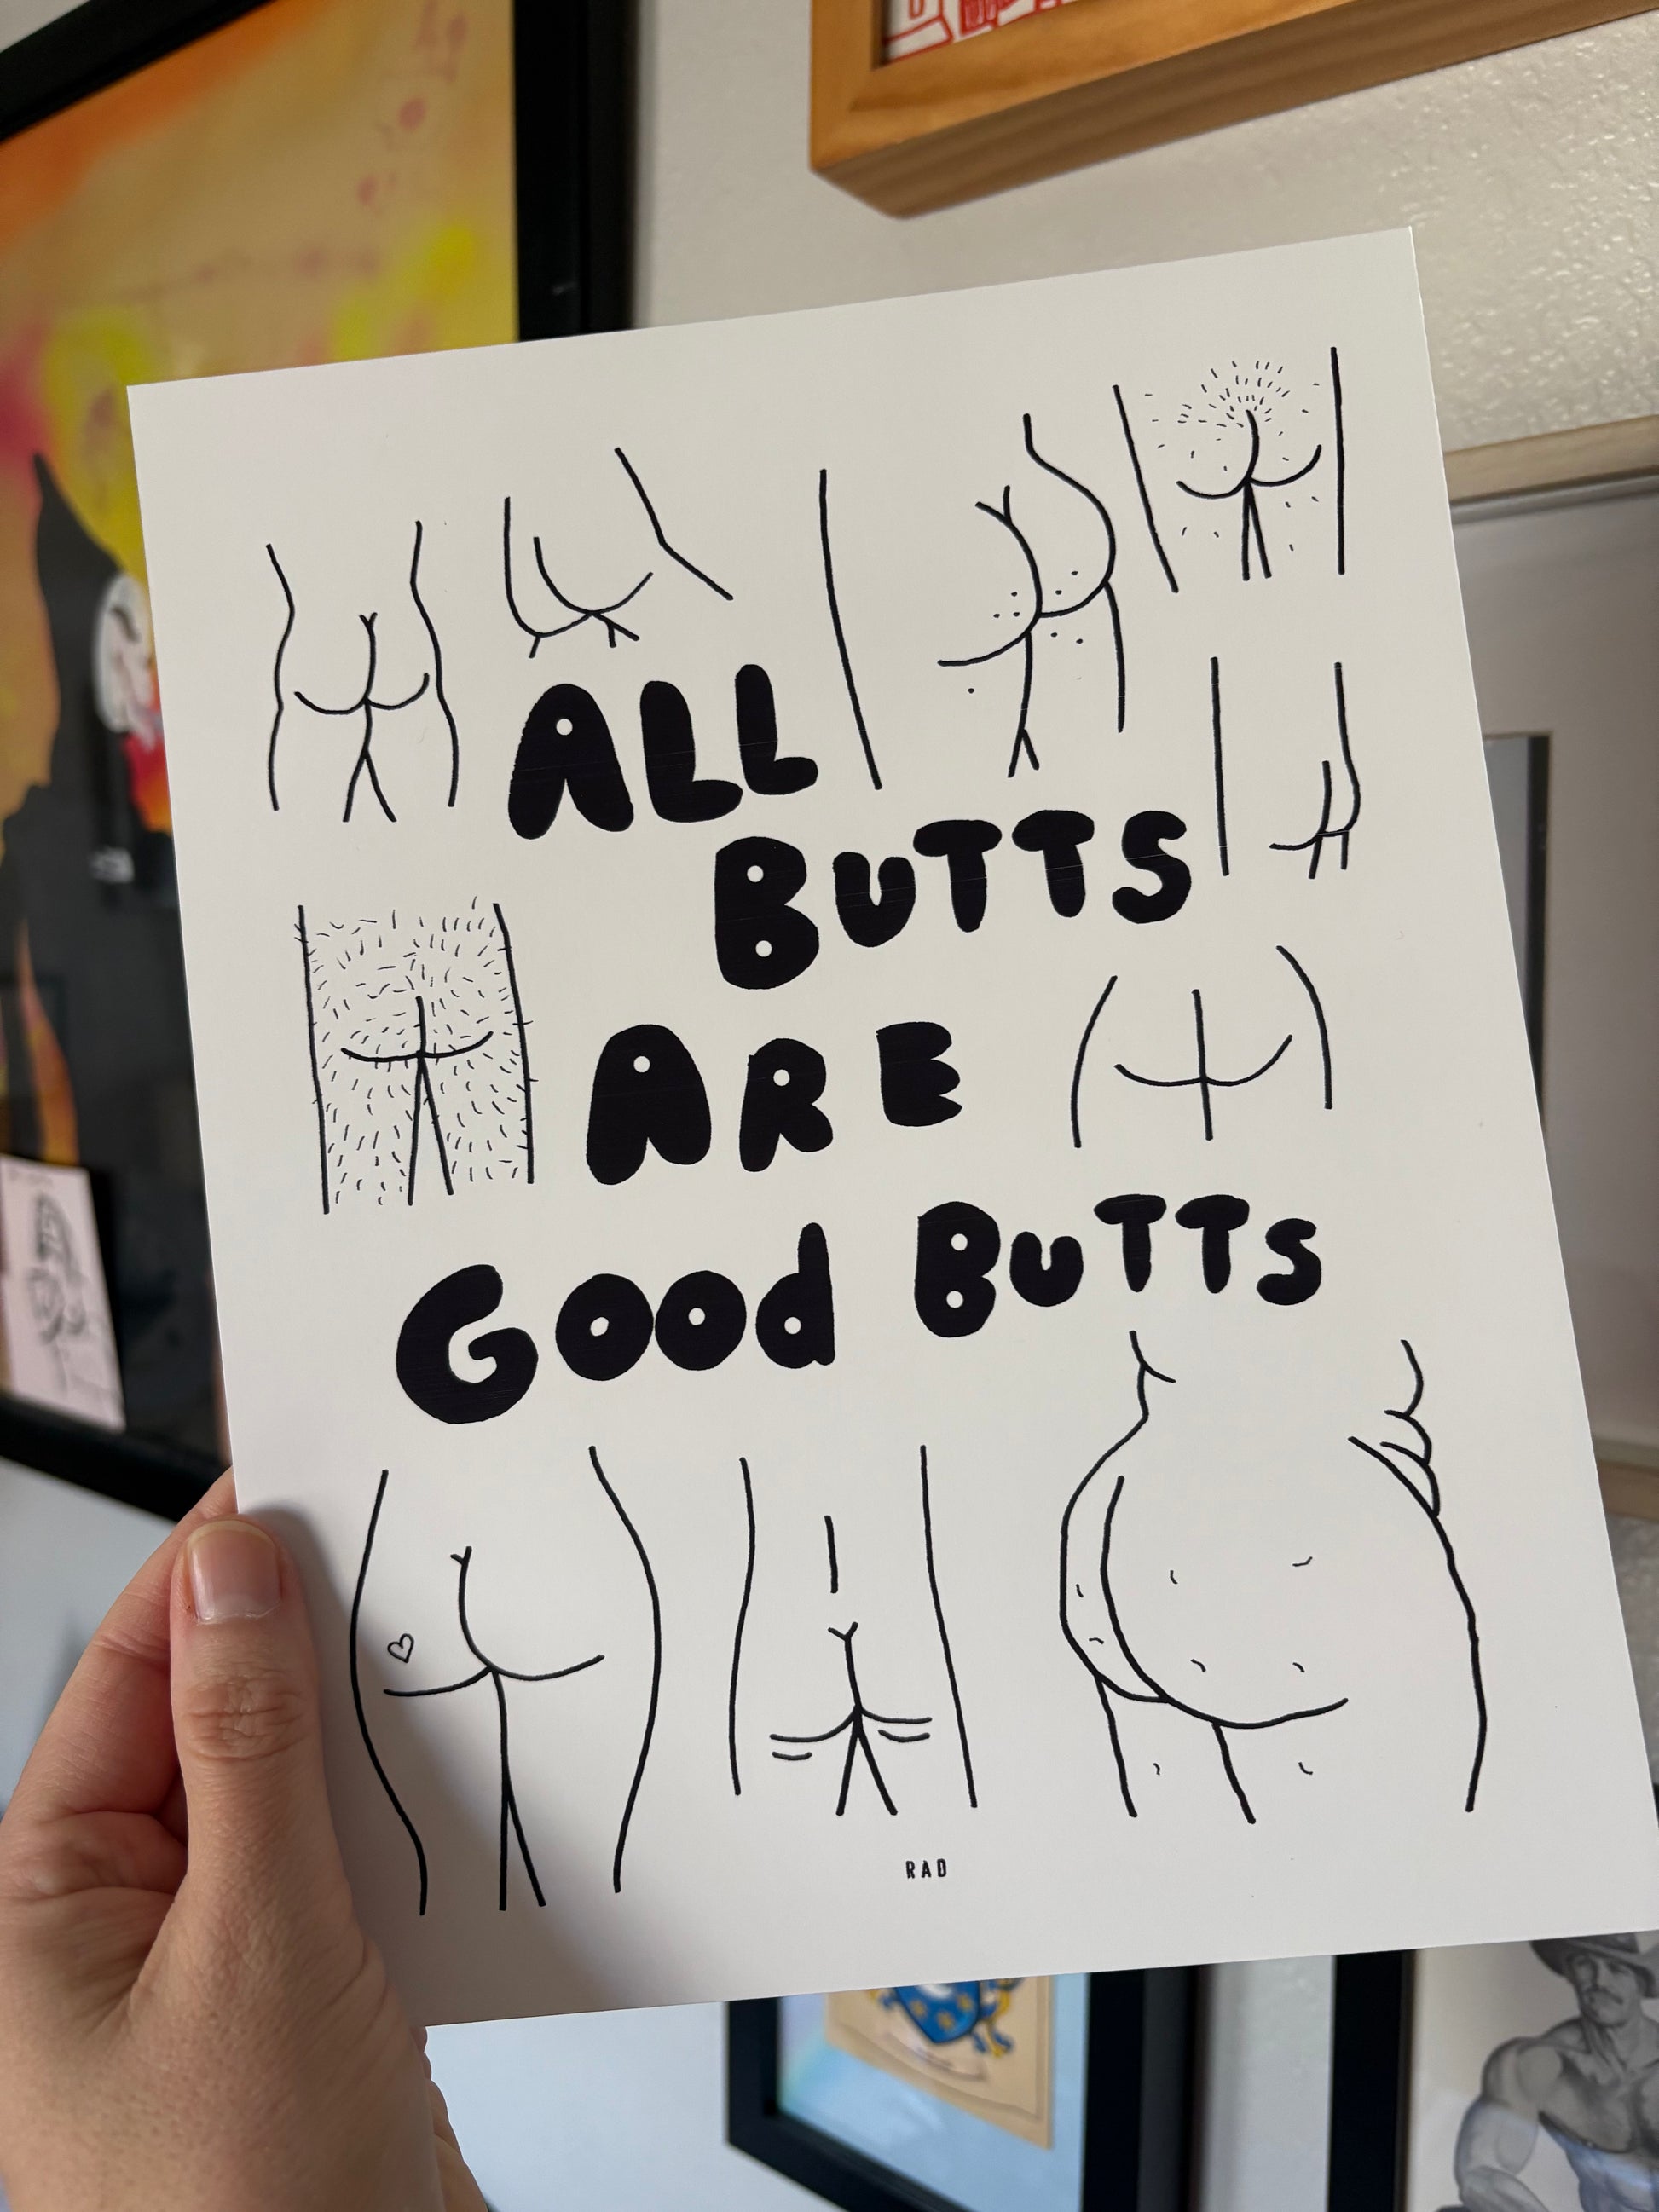 ALL
BUTTS
ARE
Good BuTTS
RAD